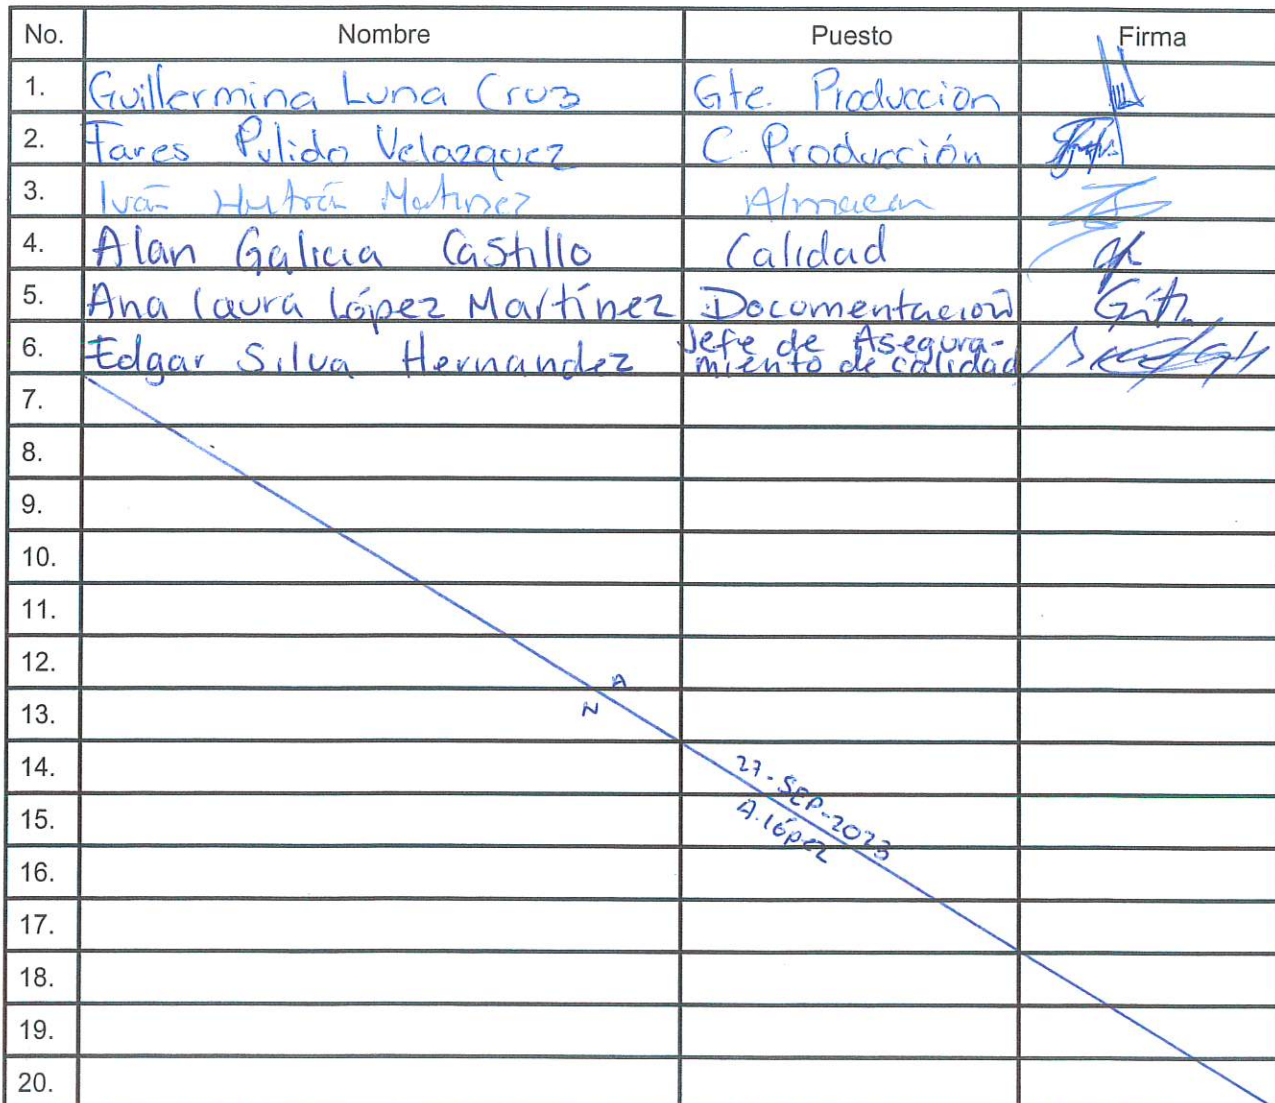 No. Nombre Puesto Firma
1. Guillermina Luna Cruz Gte. Produccion
2. Fares Pulido Velazquez C. Producción
3. Iván Martinez Almacen
4. Alan Galicia Castillo Calidad
5. Ana laura lópez Martínez Documentación
6. Edgar Silva Hernandez Jefe de Asegura-
miento de calidad
7.
8.
9.
10.
11.
12.
A
13. N
14. 27-SEP-2023
15. A. lópez
16.
17.
18.
19.
20.